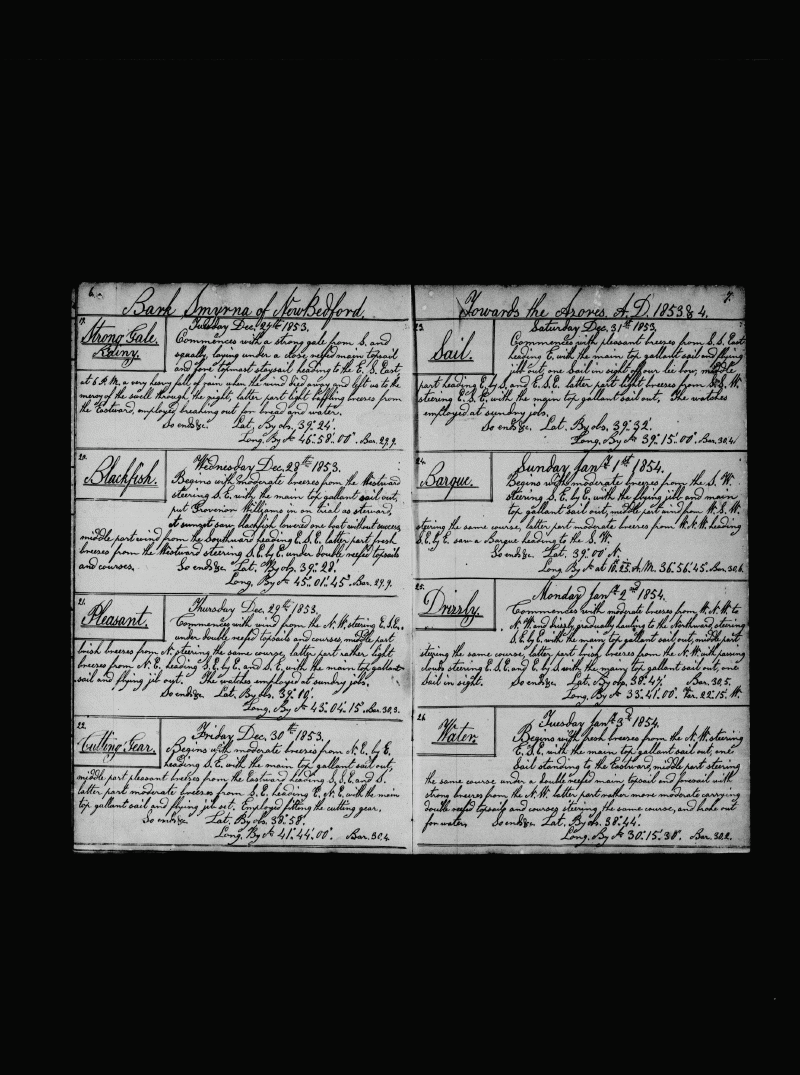 6.
Bark Smyrna of New Bedford.
19.
Strong Gale.
Rainy.
Tuesday Dec. 27th 1853.
Commences with a strong gale from S. and
squally, laying under a close reefed main topsail
and fore topmast staysail heading to the E. S. East,
at 6 P.M. a very heavy fall of rain when the wind died away and left us to the
mercy of the swell through the night, latter part light baffling breezes from
the Eastward, employed breaking out for bread and water.
So ends &c. Lat. By obs. 39°24'
Long. By Ac 46°58'00" Bar. 29.9.
20.
Blackfish.
Wednesday Dec. 28th 1853.
Begins with moderate breezes from the Westward
steering S.E. with the main top gallant sail out,
put Grovenor Williams in on trial as steward
at sunset saw blackfish lowered one boat without success
middle part wind from the Southward heading E.S.E. latter part fresh
breezes from the Westward steering S.E. by E. under double reefed topsails
and courses. So ends &c. Lat. By obs. 39°28'
Long. By Ac 45°01'45" Bar. 29.9.
21.
Pleasant.
Thursday Dec. 29th 1853.
Commences with wind from the N.W. steering E.S.E.
under double reefed topsails and courses, middle part
brisk breezes from N. steering the same course, latter part rather light
breezes from N.E. heading S.E. by E. and S.E. with the main top gallant
sail and flying jib out. The watches employed at sundry jobs.
So ends &c. Lat. By obs. 39°10'
Long. By Ac 43°04'15" Bar. 30.3.
22.
Cutting Gear
Friday Dec. 30th 1853.
Begins with moderate breezes from N.E. by E.
heading S.E. with the main top gallant sail out,
middle part pleasant breezes from the Eastward heading S.S.E. and S.
latter part moderate breezes from S.E. heading E.N.E. with the main
top gallant sail and flying jib out. Employed fitting the cutting gear.
So ends &c. Lat. By obs. 38°58'
Long. By Ac 41°44'00" Bar. 30.4.
7.
Towards the Azores. A.D. 1853 & 4.
23.
Sail.
Saturday Dec. 31st 1853.
Commences with pleasant breezes from S.S. East
heading E. with the main top gallant sail and flying
jib out, one Sail in sight off our lee bow, middle
part heading E. by S. and E.S.E. latter part light breezes from S.S.W.
steering E.S.E. with the main top gallant sail out. The watches
employed at sundry jobs.
So ends &c. Lat. By obs. 39°32'
Long. By Ac 39°15'00" Bar. 30.4
24.
Barque.
Sunday Jany 1st 1854.
Begins with moderate breezes from the S.W.
steering S.E. by E. with the flying jib and main
top gallant sail out, middle part wind from W.S.W.
steering the same course, latter part moderate breezes from W.N.W. heading
S.E. by E. saw a Barque heading to the S.W.
So ends &c. Lat. 39°00' N.
Long. By Ac at 10.25 A.M. 36°56'45" Bar. 30.6.
25.
Drizzly.
Monday Jany 2nd 1854.
Commences with moderate breezes from W.N.W. to
N.W. and drizzly, gradually hauling to the Northward, steering
S.E. by E. with the main top gallant sail out, middle part
steering the same course, latter part brisk breezes from the N.W. with passing
clouds steering E.S.E. and E. by S. with the main top gallant sail out, one
Sail in sight. So ends &c. Lat. By obs. 38°47' Bar. 30.5.
Long. By Ac 33°41'00" Ver. 22°15' W.
26.
Water.
Tuesday Jany 3d 1854.
Begins with fresh breezes from the N.W. steering
E.S.E. with the main top gallant sail out, one
Sail standing to the Eastward, middle part steering
the same course under a double reefed main topsail and foresail with
strong breezes from the N.W. latter part rather more moderate carrying
double reefed topsails and courses steering the same course, and broke out
for water. So ends &c. Lat. By obs. 38°44'
Long. By Ac 30°15'38" Bar. 30.2.